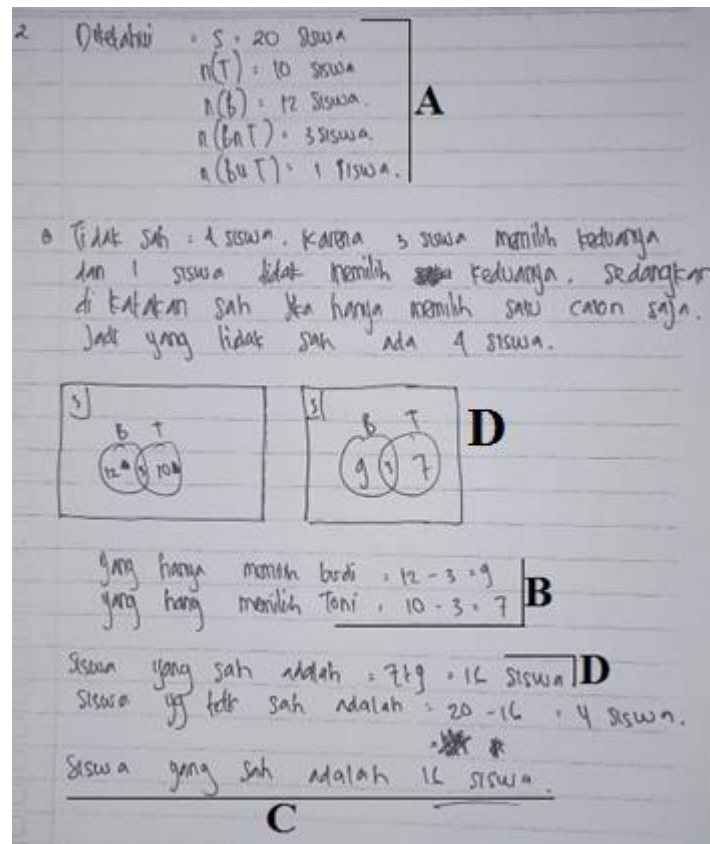 2 Diketahui : S = 20 siswa
n(T) = 10 siswa
n(B) = 12 siswa.
n(B∩T) = 3 siswa.
n(B∪T) = 1 siswa.
A
Tidak sah = 4 siswa. Karena 3 siswa memilih keduanya
dan 1 siswa tidak memilih keduanya. Sedangkan
di katakan sah jika hanya memilih satu calon saja.
Jadi yang tidak sah ada 4 siswa.
S
B T
12 3 10
S
B T
9 3 7
D
yang hanya memilih budi = 12 - 3 = 9
yang hany memilih Toni = 10 - 3 = 7
B
Siswa yang sah adalah = 7+9 = 16 siswa
D
Siswa yg tdk sah adalah = 20 - 16 = 4 siswa.
Siswa yang sah adalah 16 siswa.
C